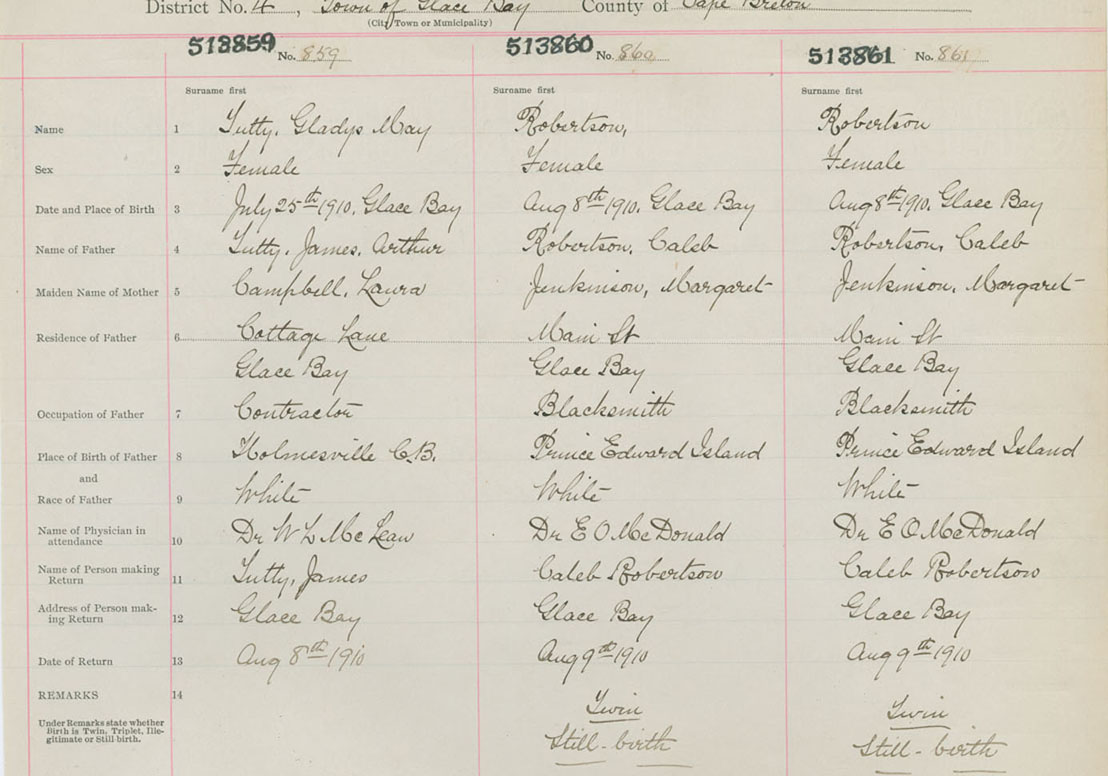 District No. 4, Town of Glace Bay County of Cape Breton
(City, Town or Municipality)
513859 No. 859 513860 No. 860 513861 No. 861
Surname first Surname first Surname first
Name 1 Tutty, Gladys May Robertson, Robertson
Sex 2 Female Female Female
Date and Place of Birth 3 July 25th 1910, Glace Bay Aug 8th 1910, Glace Bay Aug 8th 1910, Glace Bay
Name of Father 4 Tutty, James, Arthur Robertson, Caleb Robertson, Caleb
Maiden Name of Mother 5 Campbell, Laura Jenkinson, Margaret Jenkinson, Margaret
Residence of Father 6 Cottage Lane Main St Main St
Glace Bay Glace Bay Glace Bay
Occupation of Father 7 Contractor Blacksmith Blacksmith
Place of Birth of Father 8 Holmesville C.B. Prince Edward Island Prince Edward Island
and
Race of Father 9 White White White
Name of Physician in
attendance 10 Dr W L McLean Dr E O McDonald Dr E O McDonald
Name of Person making
Return 11 Tutty, James Caleb Robertson Caleb Robertson
Address of Person mak-
ing Return 12 Glace Bay Glace Bay Glace Bay
Date of Return 13 Aug 8th 1910 Aug 9th 1910 Aug 9th 1910
REMARKS 14
Twin Twin
Under Remarks state whether
Birth is Twin, Triplet, Ille-
gitimate or Still-birth.
Still-birth Still-birth